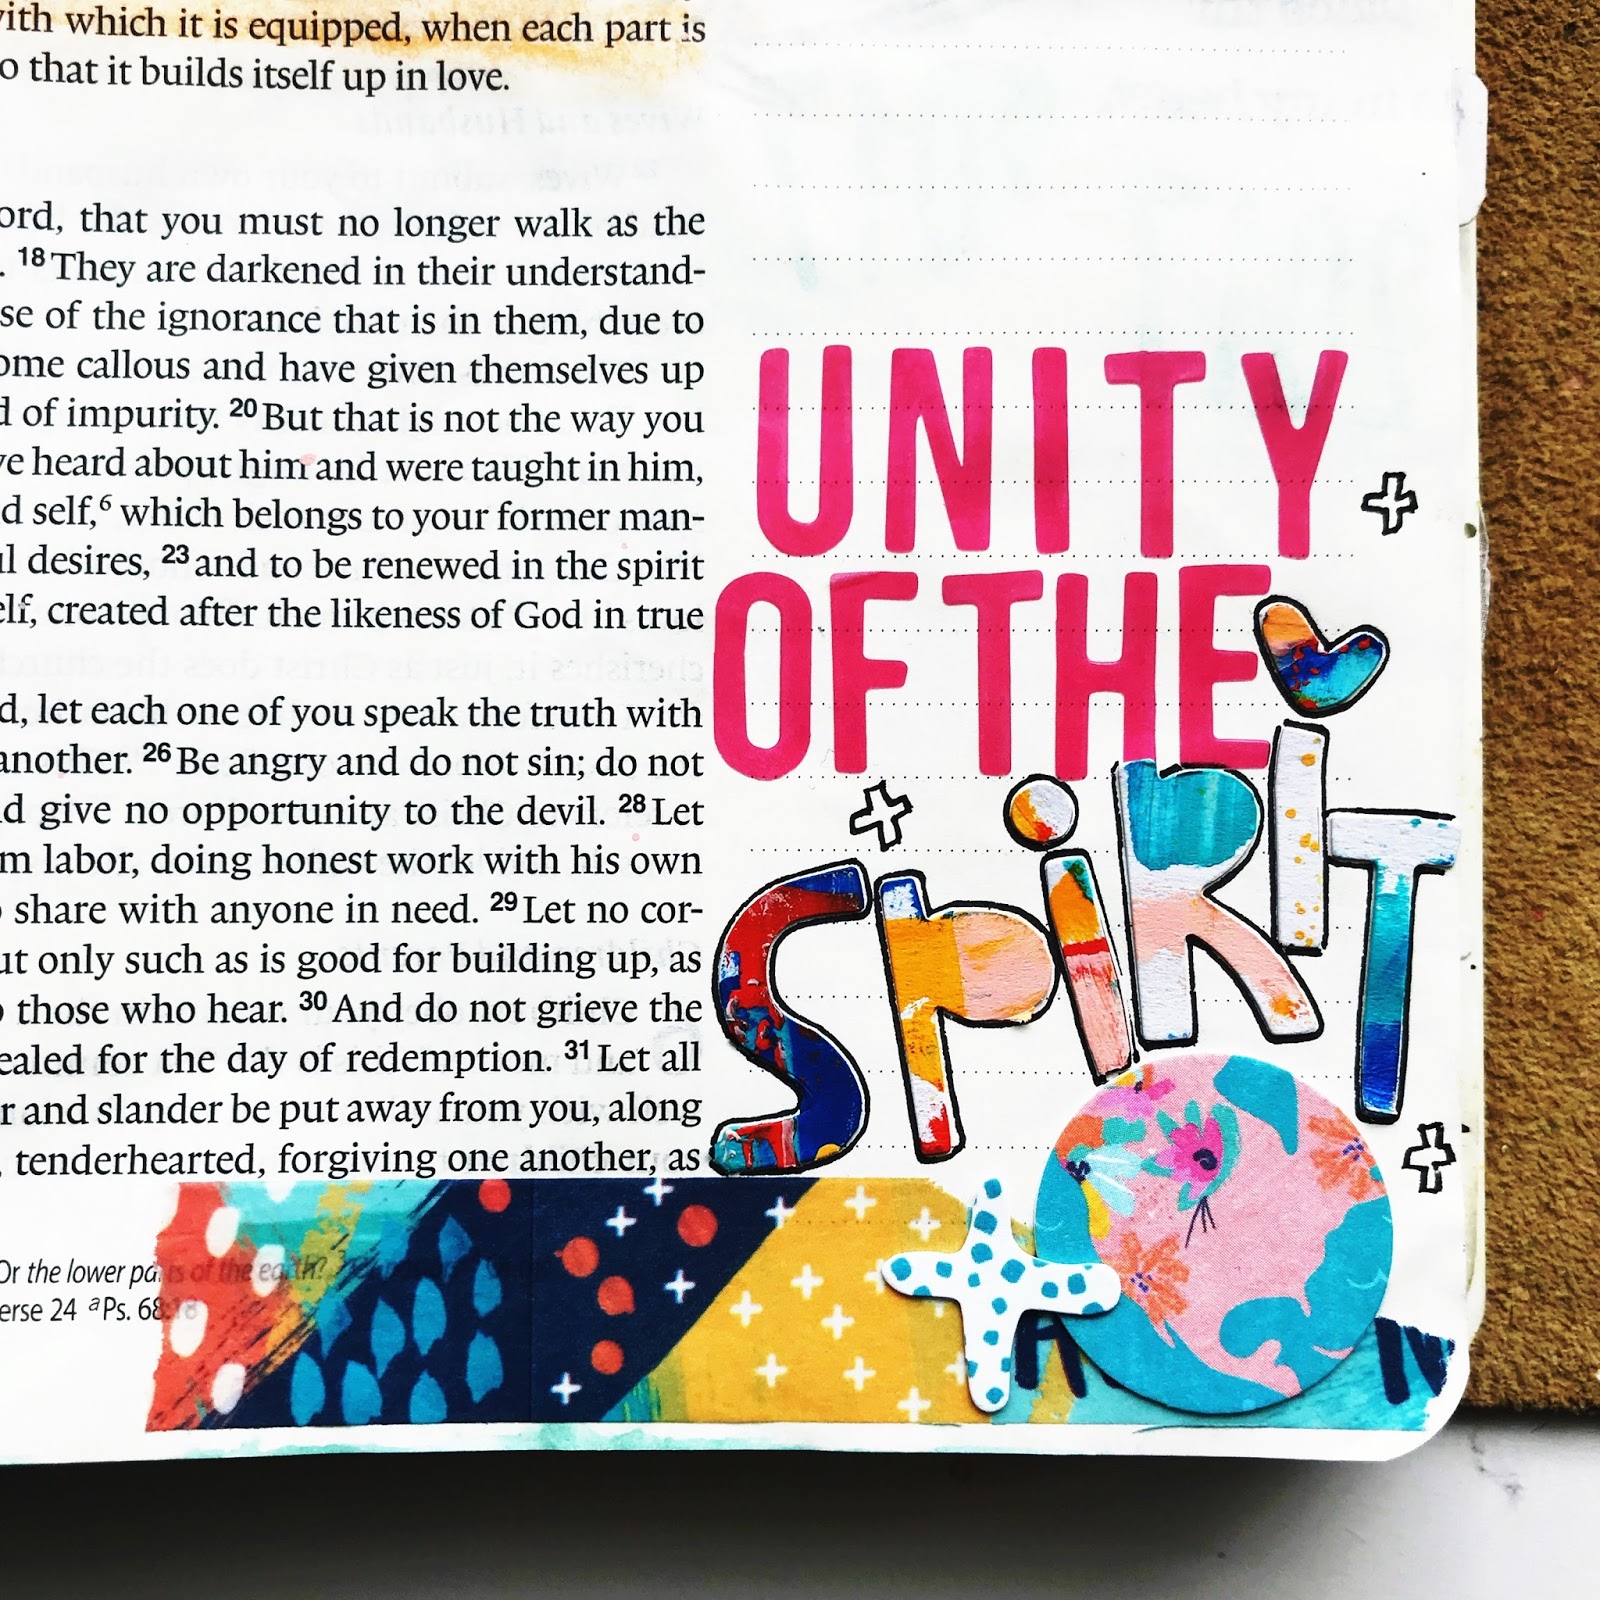 with which it is equipped, when each part is
so that it builds itself up in love.
ord, that you must no longer walk as the
. 18 They are darkened in their understand-
se of the ignorance that is in them, due to
ome callous and have given themselves up
d of impurity. 20 But that is not the way you
ve heard about him and were taught in him,
d self,6 which belongs to your former man-
ul desires, 23 and to be renewed in the spirit
elf, created after the likeness of God in true
d, let each one of you speak the truth with
another. 26 Be angry and do not sin; do not
nd give no opportunity to the devil. 28 Let
m labor, doing honest work with his own
o share with anyone in need. 29 Let no cor-
ut only such as is good for building up, as
o those who hear. 30 And do not grieve the
ealed for the day of redemption. 31 Let all
r and slander be put away from you, along
, tenderhearted, forgiving one another, as
Or the lower parts of the earth?
erse 24 a Ps. 68:18
UNITY
OF THE
SPiRIT